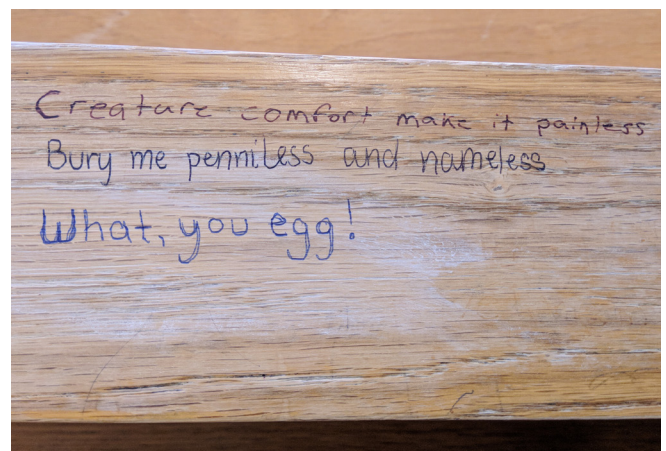 Creature comfort make it painless
Bury me penniless and nameless
What, you egg!